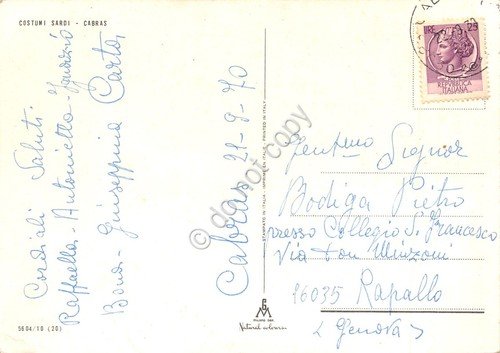 COSTUMI SARDI - CABRAS
Cordiali Saluti
Raffaella - Antonietta - Ignazio
Bonai - Giuseppina Carta,
Cabras 21-9-70
5604/10 (20)
STAMPATO IN ITALIA - PRINTED IN ITALY
MILANO DEP.
Natural colour
do not copy
LIRE 25
REPVBBLICA
ITALIANA
Gent.mo Signor
Bodiga Pietro
presso Collegio S. Francesco
Via Don Minzoni
16035 Rapallo
(Genova)